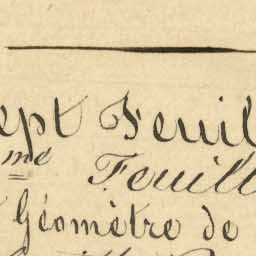 ept Feuil
me Feuill
Géomètre de